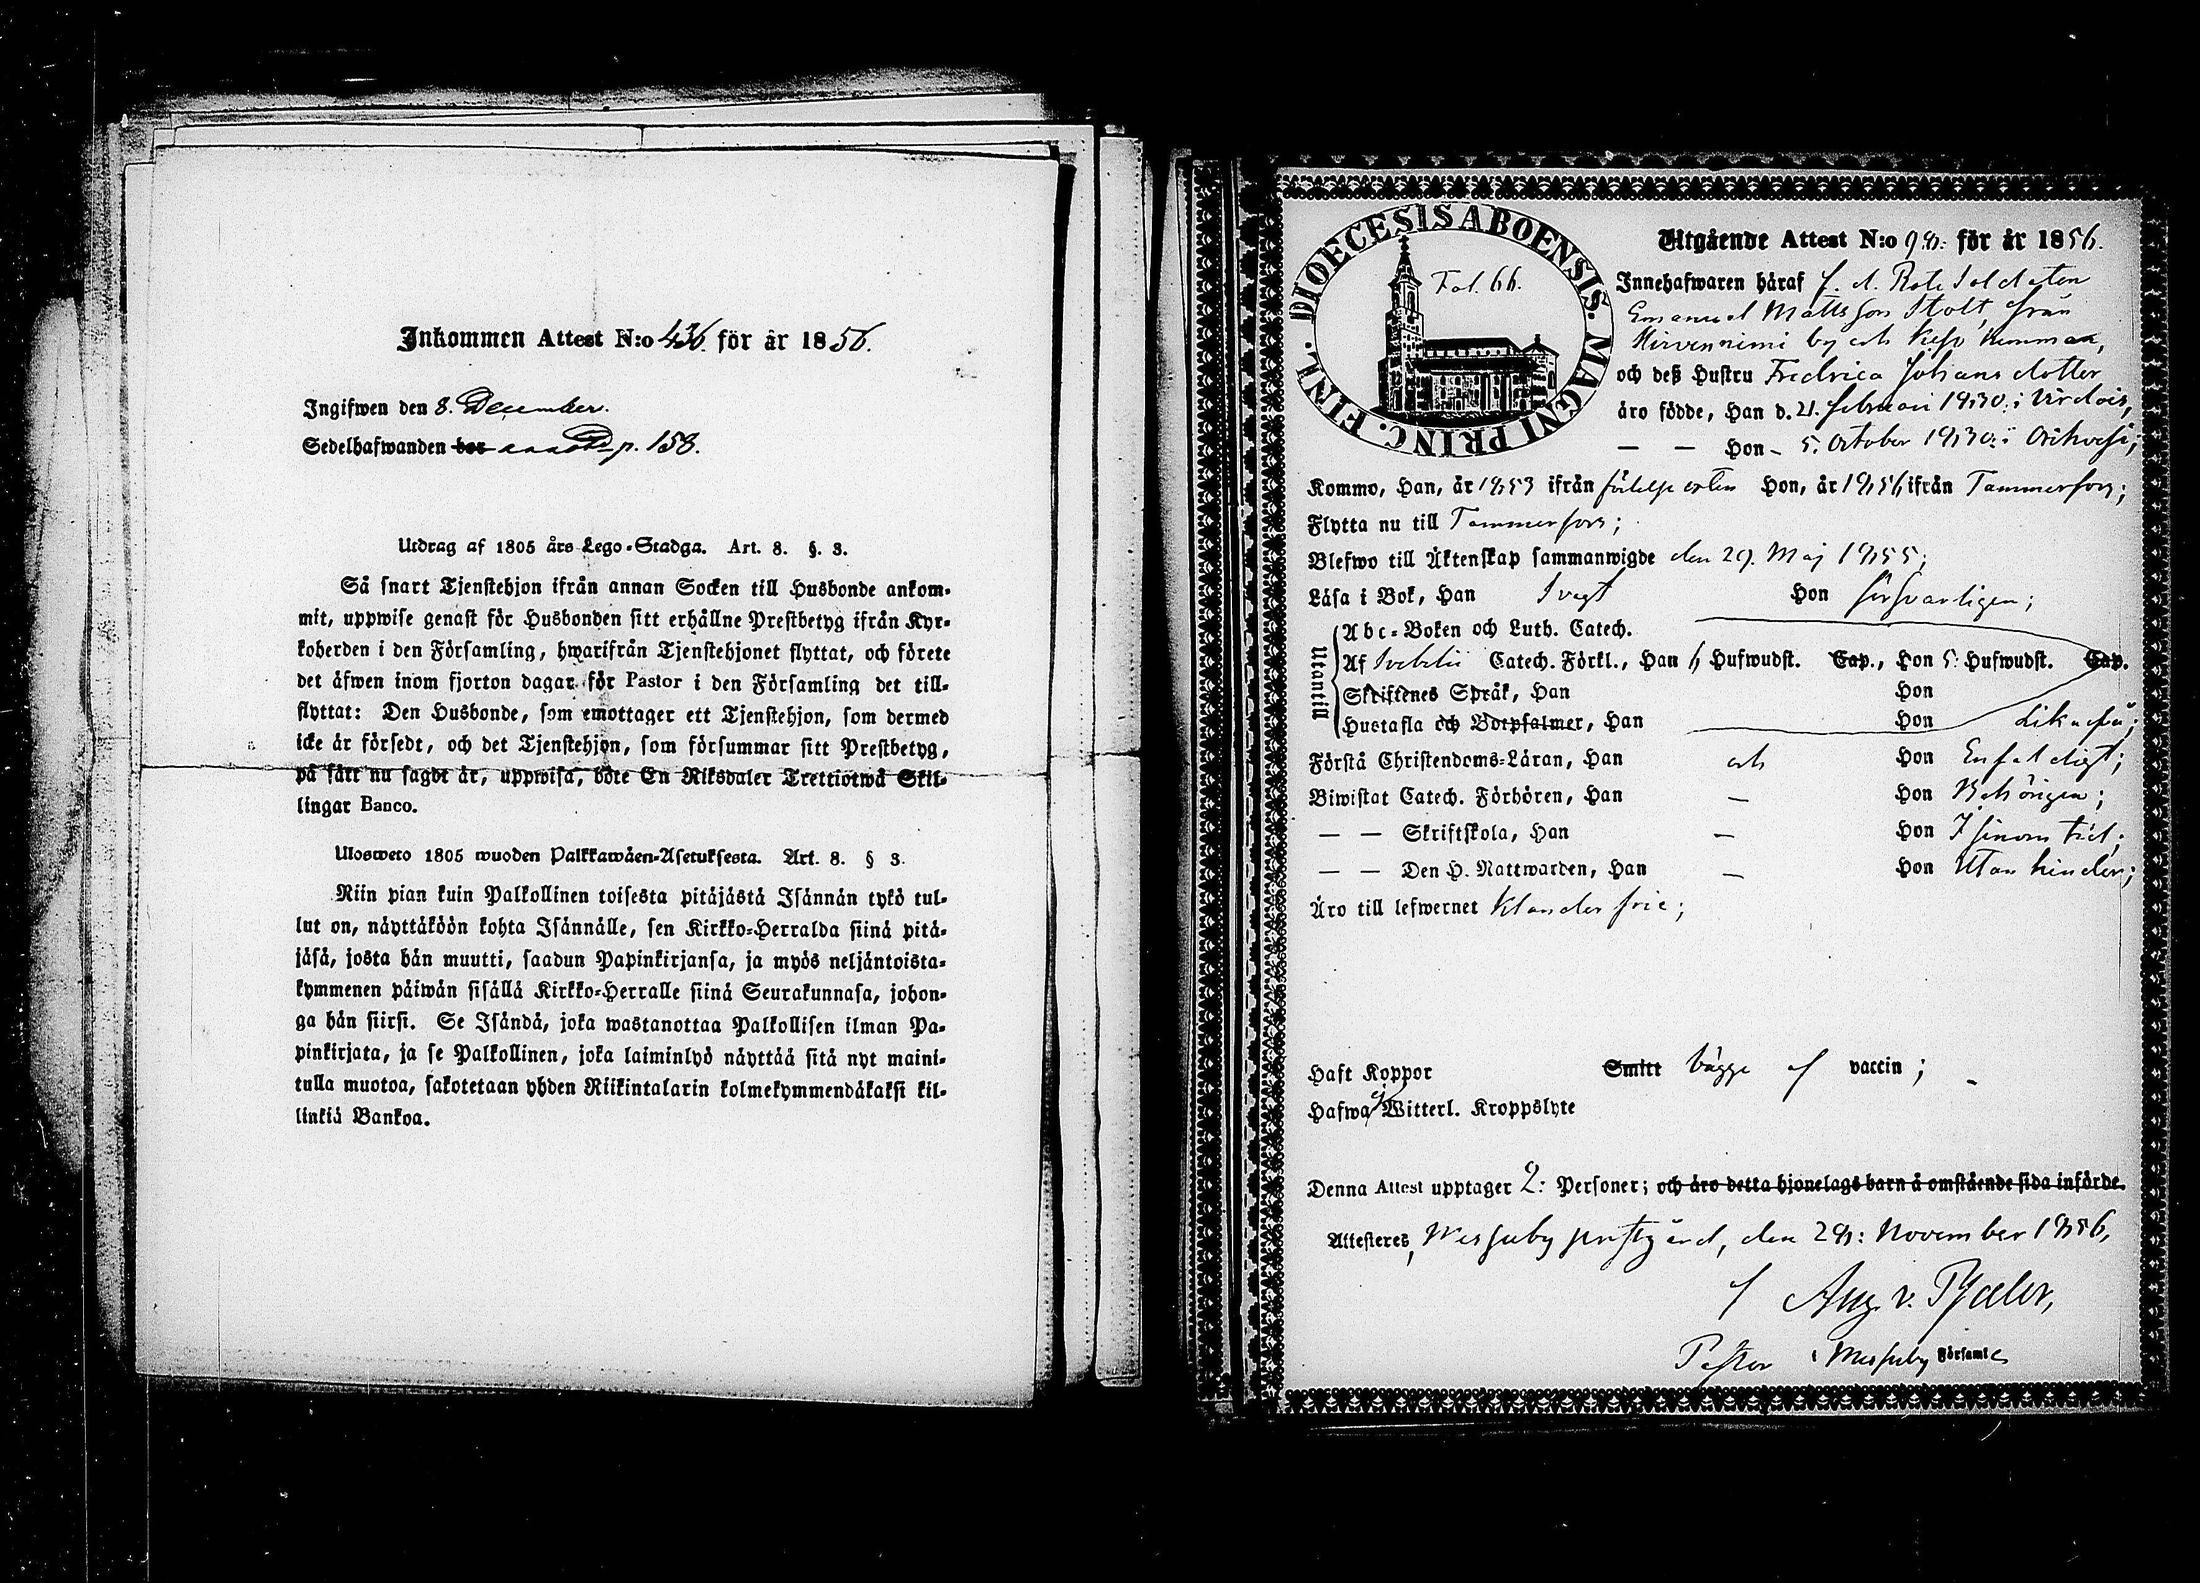 Inkommen Attest N:o 436. för år 1856.
Ingifwen den 8. December.
Sedelhafwanden bor p. 158.
Utdrag af 1805 års Lego-Stadga. Art. 8. §. 3.
Så snart Tjenstehjon ifrån annan Socken till Husbonde ankom-
mit, uppwise genast för Husbonden sitt erhållne Prestbetyg ifrån Kyr-
koherden i den Församling, hwarifrån Tjenstehjonet flyttat, och förete
det äfwen inom fjorton dagar för Pastor i den Församling det till-
flyttat: Den Husbonde, som emottager ett Tjenstehjon, som dermed
icke är försedt, och det Tjenstehjon, som försummar sitt Prestbetyg,
på sätt nu sagdt är, uppwisa, böte En Riksdaler Trettiotwå Skil-
lingar Banco.
Ulosweto 1805 wuoden Palkkawäen-Asetuksesta. Art. 8. § 3.
Niin pian kuin Palkollinen toisesta pitäjästä Isännän tykö tul-
lut on, näyttäköön kohta Isännälle, sen Kirkko-Herralda siinä pitä-
jäsä, josta hän muutti, saadun Papinkirjansa, ja myös neljäntoista-
kymmenen päiwän sisällä Kirkko-Herralle siinä Seurakunnasa, johon-
ga hän siirsi. Se Isändä, joka wastanottaa Palkollisen ilman Pa-
pinkirjata, ja se Palkollinen, joka laiminlyö näyttää sitä nyt maini-
tulla muotoa, sakotetaan yhden Riikintalarin kolmekymmendäkaksi kil-
linkiä Bankoa.
DIOECESIS ABOENSIS. MAGNI PRINC. FINL.
Fol. 66.
Utgående Attest N:o 98: för år 1856.
Innehafwaren häraf f. d. Rote Soldaten
Emanuel Mattsson Stolt, från
Hirvenniemi by och Keso hemman,
och deß Hustru Fredrica Johansdotter
äro födde, Han d. 21. februari 1830: i Virdois,
— — Hon - 5. October 1830: i Orihvesi;
Kommo, Han, år 1853 ifrån födelse orten Hon, år 1856 ifrån Tammerfors;
Flytta nu till Tammerfors;
Blefwo till Äktenskap sammanwigde den 29. Maj 1855;
Läsa i Bok, Han Svagt Hon försvarligen;
Utantill
Abc-Boken och Luth. Catech.
Af Svebilii Catech. Förkl., Han 4 Hufwudst. Cap., Hon 5: Hufwudst. Cap.
Skriftenes Språk, Han Hon
Hustafla och Botpsalmer, Han Hon Likaså;
Förstå Christendoms-Läran, Han och Hon Enfaldigt;
Biwistat Catech. Förhören, Han — Hon Behörigen;
— — Skriftskola, Han — Hon I sinom tid;
— — Den H. Nattwarden, Han — Hon Utan hinder;
Äro till lefwernet Klanderfrie;
Haft Koppor Smitt bägge af vaccin;
Hafwa ej Witterl. Kroppslyte
Denna Attest upptager 2: Personer; och äro detta hjonelags barn å omstående sida införde.
Attesteres, Messuby prestgård, den 28: November 1856,
af Aug. v. Pfaler,
Pastor i Messuby Församl.